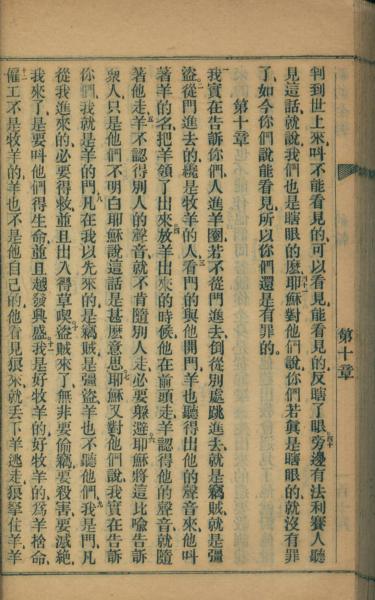 判到世上來、叫不能看見的、可以看見、能看見的、反瞎了眼、旁邊有法利賽人聽
見這話、就說、我們也是瞎眼的麽、耶穌對他們說、你們若眞是瞎眼的、就沒有罪
了、如今你們說能看見、所以你們還是有罪的、
第十章
我實在告訴你們、人進羊圈若不從門進去、倒從別處跳進去、就是竊賊、就是强
盜、從門進去的、纔是牧羊的人、看門的與他開門、羊也聽得出他的聲音來、他叫
著羊的名、把羊領了出來、放羊出來的時候、他在前頭走、羊認得他的聲音、就隨
著他走、羊不認得別人的聲音、就不肯隨別人走、必要躱避、耶穌將這比喩告訴
衆人、只是他們不明白耶穌說這話是甚麽意思、耶穌又對他們說、我實在告訴
你們、我就是羊的門、凡在我以先來的、是竊賊、是强盜、羊也不聽他們、我是門、凡
從我進來的、必要得救、並且出入得草喫、盜賊來了、無非要偷竊、要殺害、要滅絶、
我來了、是要叫他們得生命、並且越發興盛、我是好牧羊的、好牧羊的爲羊捨命、
僱工不是牧羊的、羊也不是他自己的、他看見狼來、就丟下羊逃走、狼拏住羊、羊
第十章